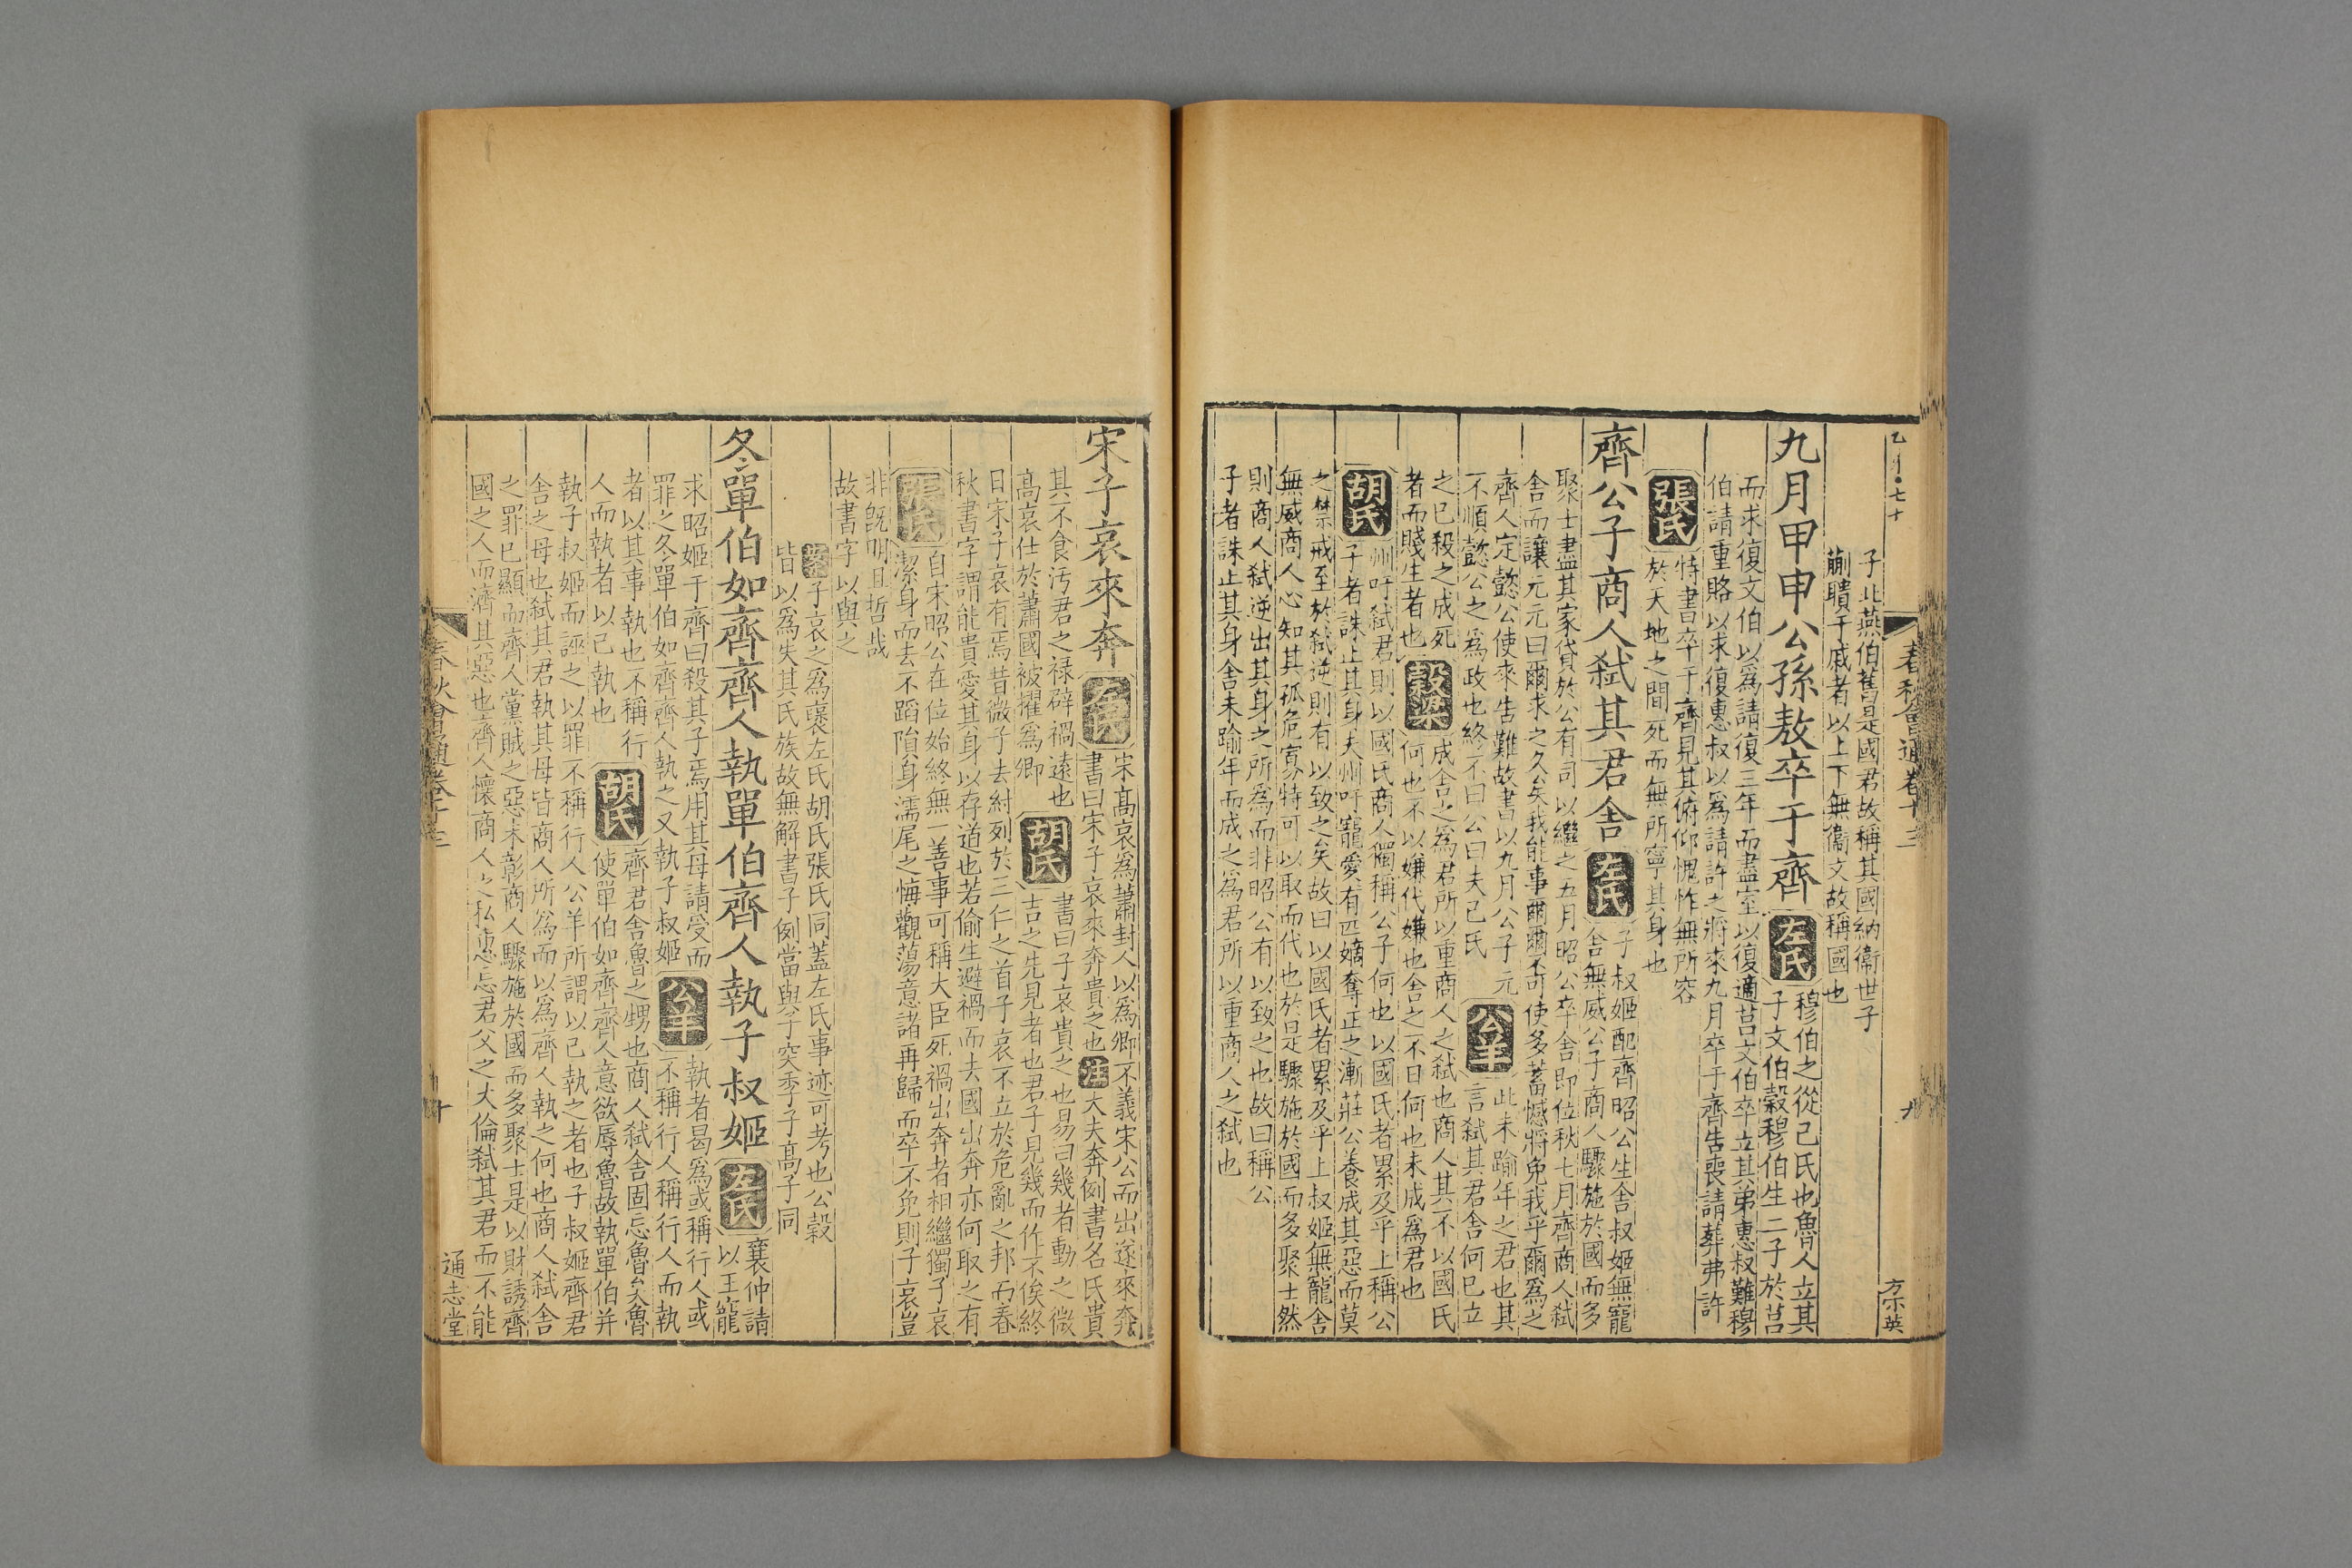 子北燕伯舊是國君故稱其國納衞世子
蒯聵于戚者以上下無衞文故稱國也
九月甲申公孫敖卒于齊 左氏 穆伯之從己氏也魯人立其
子文伯穀穆伯生二子於莒
而求復文伯以爲請復三年而盡室以復適莒文伯卒立其弟惠叔難穆
伯請重賂以求復惠叔以爲請許之將來九月卒于齊告喪請葬弗許
張氏 特書卒于齊見其俯仰愧怍無所容
於天地之間死而無所寧其身也
齊公子商人弑其君舍 左氏 子叔姬配齊昭公生舍叔姬無寵
舍無威公子商人驟施於國而多
聚士盡其家貸於公有司以繼之五月昭公卒舍即位秋七月齊商人弑
舍而讓元元曰爾求之久矣我能事爾爾不可使多蓄憾將免我乎爾爲之
齊人定懿公使來告難故書以九月公子元
不順懿公之爲政也終不曰公曰夫己氏 公羊 此未踰年之君也其
言弑其君舍何已立
之已殺之成死
者而賤生者也 穀梁 成舍之爲君所以重商人之弑也商人其不以國氏
何也不以嫌代嫌也舍之不日何也未成爲君也
胡氏 州吁弑君則以國氏商人獨稱公子何也以國氏者累及乎上稱公
子者誅止其身夫州吁寵愛有匹嫡奪正之漸莊公養成其惡而莫
之禁戒至於弑逆則有以致之矣故曰以國氏者累及乎上叔姬無寵舍
無威商人心知其孤危寡特可以取而代也於是驟施於國而多聚士然
則商人弑逆出其身之所爲而非昭公有以致之也故曰稱公
子者誅止其身舍未踰年而成之爲君所以重商人之弑也
春秋會通卷十三
九
方宗英
宋子哀來奔 左氏 宋高哀爲蕭封人以爲卿不義宋公而出遂來奔
書曰宋子哀來奔貴之也 注 大夫奔例書名氏貴
其不食汚君之祿辟禍遠也
高哀仕於蕭國被擢爲卿 胡氏 書曰子哀貴之也易曰幾者動之微
吉之先見者也君子見幾而作不俟終
日宋子哀有焉昔微子去紂列於三仁之首子哀不立於危亂之邦而春
秋書字謂能貴愛其身以存道也若偷生避禍而去國出奔亦何取之有
張氏 自宋昭公在位始終無一善事可稱大臣死禍出奔者相繼獨子哀
潔身而去不蹈隕身濡尾之悔觀蕩意諸再歸而卒不免則子哀豈
非旣明且哲哉
故書字以與之
子哀之爲褒左氏胡氏張氏同蓋左氏事迹可考也公穀
皆以爲失其氏族故無解書子例當與子突季子高子同
冬單伯如齊齊人執單伯齊人執子叔姬 左氏 襄仲請
以王寵
求昭姬于齊曰殺其子焉用其母請受而
罪之冬單伯如齊齊人執之又執子叔姬 公羊 執者曷爲或稱行人或
不稱行人稱行人而執
者以其事執也不稱行
人而執者以己執也 胡氏 齊君舍魯之甥也商人弑舍固忌魯矣魯
使單伯如齊齊人意欲辱魯故執單伯并
執子叔姬而誣之以罪不稱行人公羊所謂以己執之者也子叔姬齊君
舍之母也弑其君執其母皆商人所爲而以爲齊人執之何也商人弑舍
之罪已顯而齊人黨賊之惡未彰商人驟施於國而多聚士是以財誘齊
國之人而濟其惡也齊人懷商人之私惠忘君父之大倫弑其君而不能
春秋會通卷十三
十
通志堂